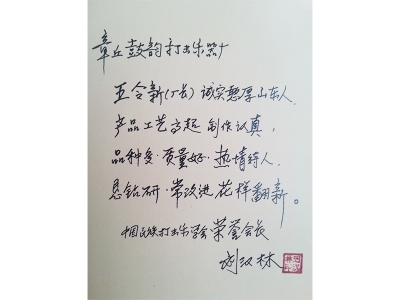 章丘鼓韵打击乐器厂
王令新(厂长)诚实憨厚山东人.
产品工艺高超 制作认真,
品种多·质量好·热情待人.
恳钻研·常改进花样翻新。
中国民族打击乐学会荣誉会长
刘汉林